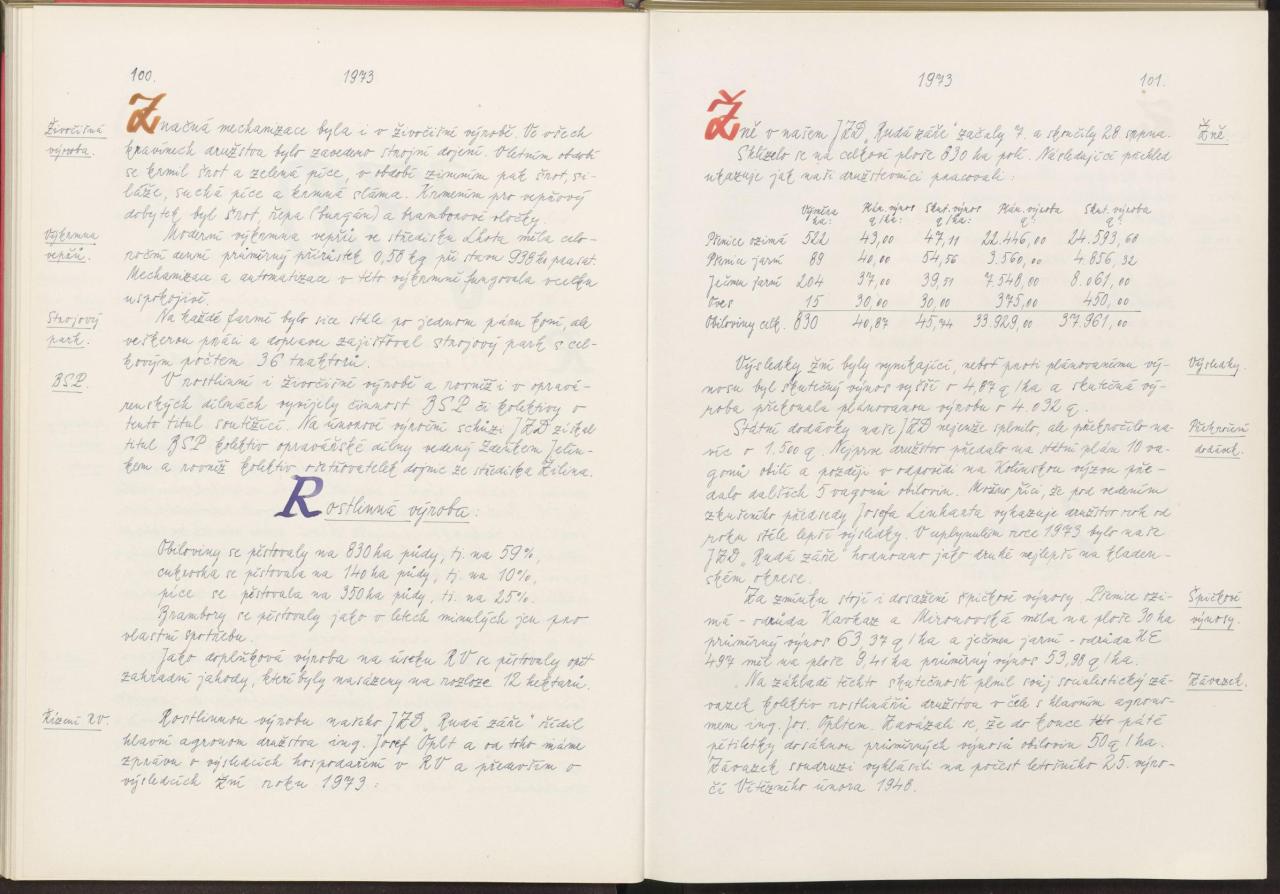 100.
1973
Živočišná
výroba.
Značná mechanizace byla i v živočišné výrobě. Ve všech
kravínech družstva bylo zavedeno strojní dojení. V letním období
se krmil šrot a zelená píce, v období zimním pak šrot, si-
láže, suchá píce a krmná sláma. Krmením pro vepřový
dobytek byl šrot, řepa (burgán) a bramborové vločky.
Výkrmna
vepřů.
Moderní výkrmna vepřů ve středisku Lhota měla celo-
roční denní průměrný přírůstek 0,58 kg při stavu 938 ks prasat.
Mechanizace a automatizace v této výkrmně fungovala vcelku
uspokojivě.
Strojový
park.
Na každé farmě bylo sice stále po jednom páru koní, ale
veškerou práci a dopravu zajišťoval strojový park s cel-
kovým počtem 36 traktorů.
BSP.
V rostlinné i živočišné výrobě a rovněž i v opravá-
renských dílnách vyvíjely činnost BSP či kolektivy o
tento titul soutěžící. Na únorové výroční schůzi JZD získal
titul BSP kolektiv opravářské dílny vedený Zdeňkem Jelín-
kem a rovněž kolektiv ošetřovatelek dojnic ze střediska Žilina.
Rostlinná výroba:
Obiloviny se pěstovaly na 830 ha půdy, tj. na 59%,
cukrovka se pěstovala na 140 ha půdy, tj. na 10%,
píce se pěstovala na 350 ha půdy, tj. na 25%.
Brambory se pěstovaly jako v letech minulých jen pro
vlastní spotřebu.
Jako doplňková výroba na úseku RV se pěstovaly opět
zahradní jahody, které byly nasázeny na rozloze 12 hektarů.
Řízení RV.
Rostlinnou výrobu našeho JZD „Rudá záře" řídil
hlavní agronom družstva ing. Josef Oplt a od toho máme
zprávu o výsledcích hospodaření v RV a především o
výsledcích žní roku 1973:
1973
101.
Žně v našem JZD „Rudá záře" začaly 7. a skončily 28. srpna.
Žně
Sklízelo se na celkové ploše 830 ha polí. Následující přehled
ukazuje jak naši družstevníci pracovali:
Výměra Plán. výnos Skut. výnos Plán. výroba Skut. výroba
ha: q/ha: q/ha: q: q:
Pšenice ozimá 522 43,00 47,11 22.446,00 24.593,60
Pšenice jarní 89 40,00 54,56 3.560,00 4.856,32
Ječmen jarní 204 37,00 39,51 7.548,00 8.061,00
Oves 15 30,00 30,00 375,00 450,00
Obiloviny celk. 830 40,87 45,74 33.929,00 37.961,00
Výsledky žní byly vynikající, neboť proti plánovanému vý-
Výsledky.
nosu byl skutečný výnos vyšší o 4,87 q/ha a skutečná vý-
roba překonala plánovanou výrobu o 4.032 q.
Státní dodávky naše JZD nejenže splnilo, ale překročilo na-
Překročení
dodávek.
víc o 1.500 q. Nejprve družstvo předalo na státní plán 10 va-
gonů obilí a později v odpovědi na Kolínskou výzvu pře-
dalo dalších 5 vagonů obilovin. Možno říci, že pod vedením
zkušeného předsedy Josefa Linharta vykazuje družstvo rok od
roku stále lepší výsledky. V uplynulém roce 1973 bylo naše
JZD „Rudá záře" hodnoceno jako druhé nejlepší na kladen-
ském okrese.
Za zmínku stojí i dosažené špičkové výnosy. Pšenice ozi-
Špičkové
výnosy.
má - odrůda Kavkaz a Mironovská měla na ploše 30 ha
průměrný výnos 63,37 q/ha a ječmen jarní - odrůda HE
497 měl na ploše 9,41 ha průměrný výnos 53,98 q/ha.
Na základě těchto skutečností plnil svůj socialistický zá-
Závazek.
vazek kolektiv rostlinářů družstva v čele s hlavním agrono-
mem ing. Jos. Opltem. Zavázali se, že do konce této páté
pětiletky dosáhnou průměrných výnosů obilovin 50 q/ha.
Závazek soudruzi vyhlásili na počest letošního 25. výro-
čí Vítězného února 1948.